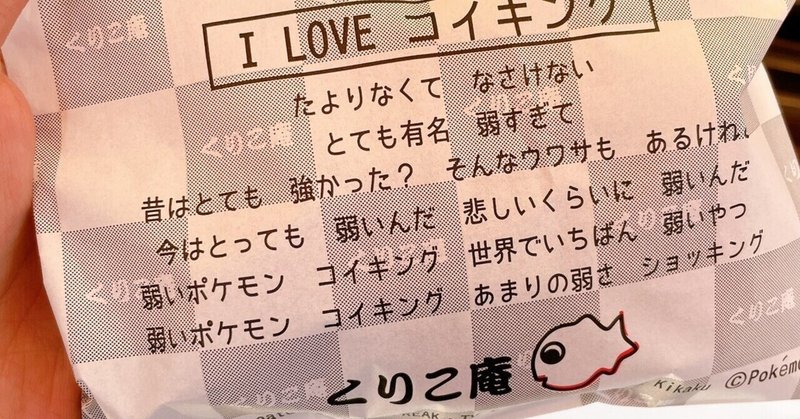 I LOVE コイキング
たよりなくて なさけない
とても有名 弱すぎて
昔はとても 強かった? そんなウワサも あるけれ
今はとっても 弱いんだ 悲しいくらいに 弱いんだ
弱いポケモン コイキング 世界でいちばん 弱いやつ
弱いポケモン コイキング あまりの弱さ ショッキング
くりこ庵
Kikaku ©Pokém
くりこ庵
くりこ庵
くりこ庵
くりこ庵